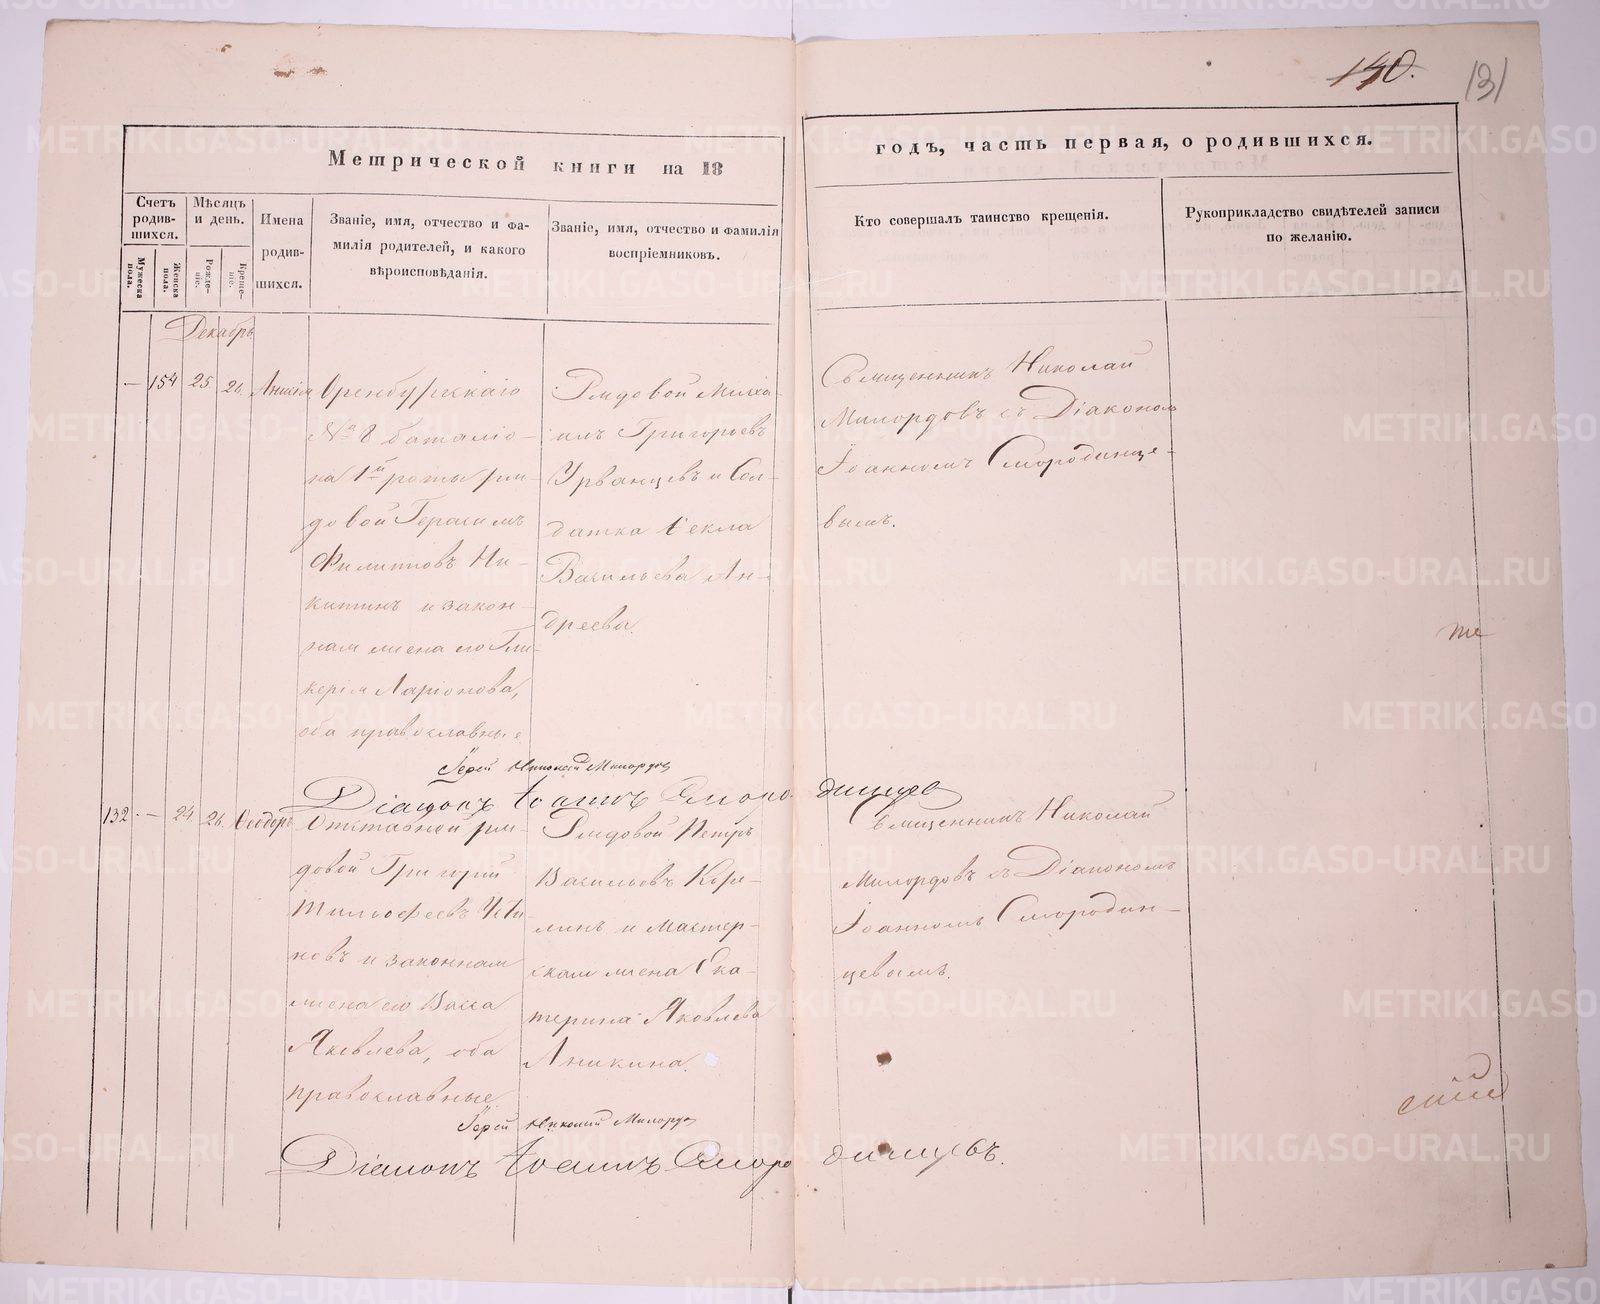 140.
131
Метрической книги на 18
годъ, часть первая, о родившихся.
Счетъ родив-шихся.
Мѣсяцъ и день.
Имена родив-шихся.
Званіе, имя, отчество и фа-
милія родителей, и какого
вѣроисповѣданія.
Званіе, имя, отчество и фамилія
воспріемниковъ.
Кто совершалъ таинство крещенія.
Рукоприкладство свидѣтелей записи
по желанію.
Мужеска пола.
Женска пола.
Рожде-ніе.
Креще-ніе.
Декабрь
— 154 25 26
Оренбургскаго
№ 8 баталіо-
на 1й роты ря-
довой Герасимъ
Филипповъ Ни-
китинъ и закон-
ная жена его Гли-
керія Ларіонова,
оба православные
Рядовой Миха-
илъ Григорьевъ
Урванцевъ и Сол-
датка Ѳекла
Васильева Ан-
дреева.
Священникъ Николай
Милордовъ съ Діакономъ
Іоанномъ Смородинце-
вымъ.
Іерей Николай Милордовъ
Діаконъ Іоаннъ Смородинцевъ
132 — 24 26 Ѳеодоръ
Отставной ря-
довой Григорій
Тимофеевъ
новъ и законная
жена его Васса
Яковлева, оба
православные
Рядовой Петръ
Васильевъ Коре-
линъ и мастер-
ская жена Ека-
терина Яковлева
Аникина.
Священникъ Николай
Милордовъ съ Діакономъ
Іоанномъ Смородин-
цевымъ.
Іерей Николай Милордовъ
Діаконъ Іоаннъ Смородинцевъ.
METRIKI.GASO-URAL.RU